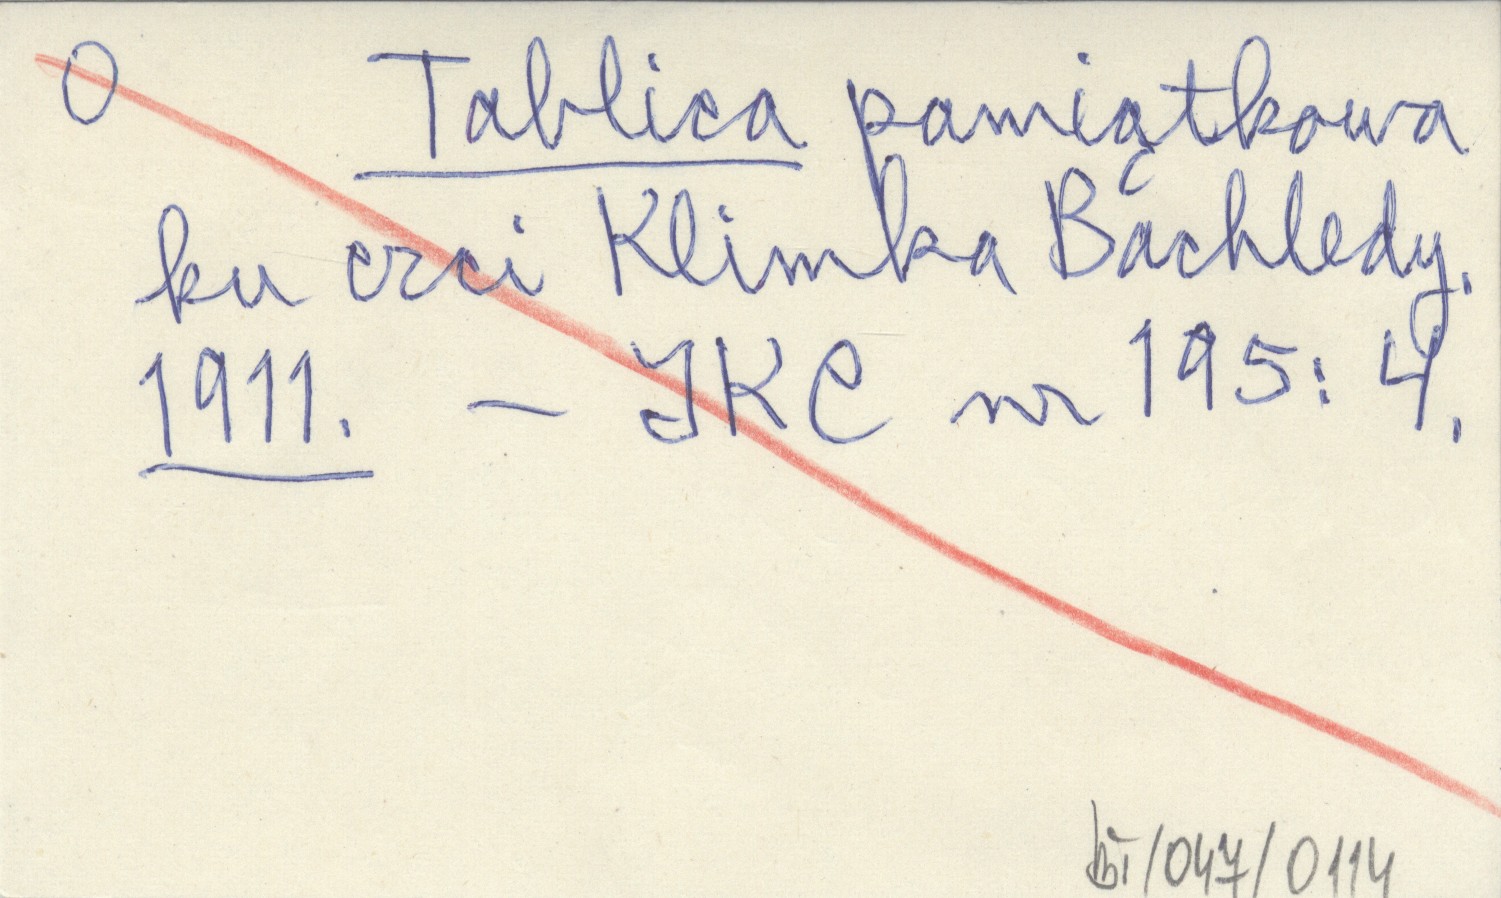 O Tablica pamiątkowa
ku czci Klimka Bachledy.
1911. – IKC nr 195: 4.
bi/047/0114